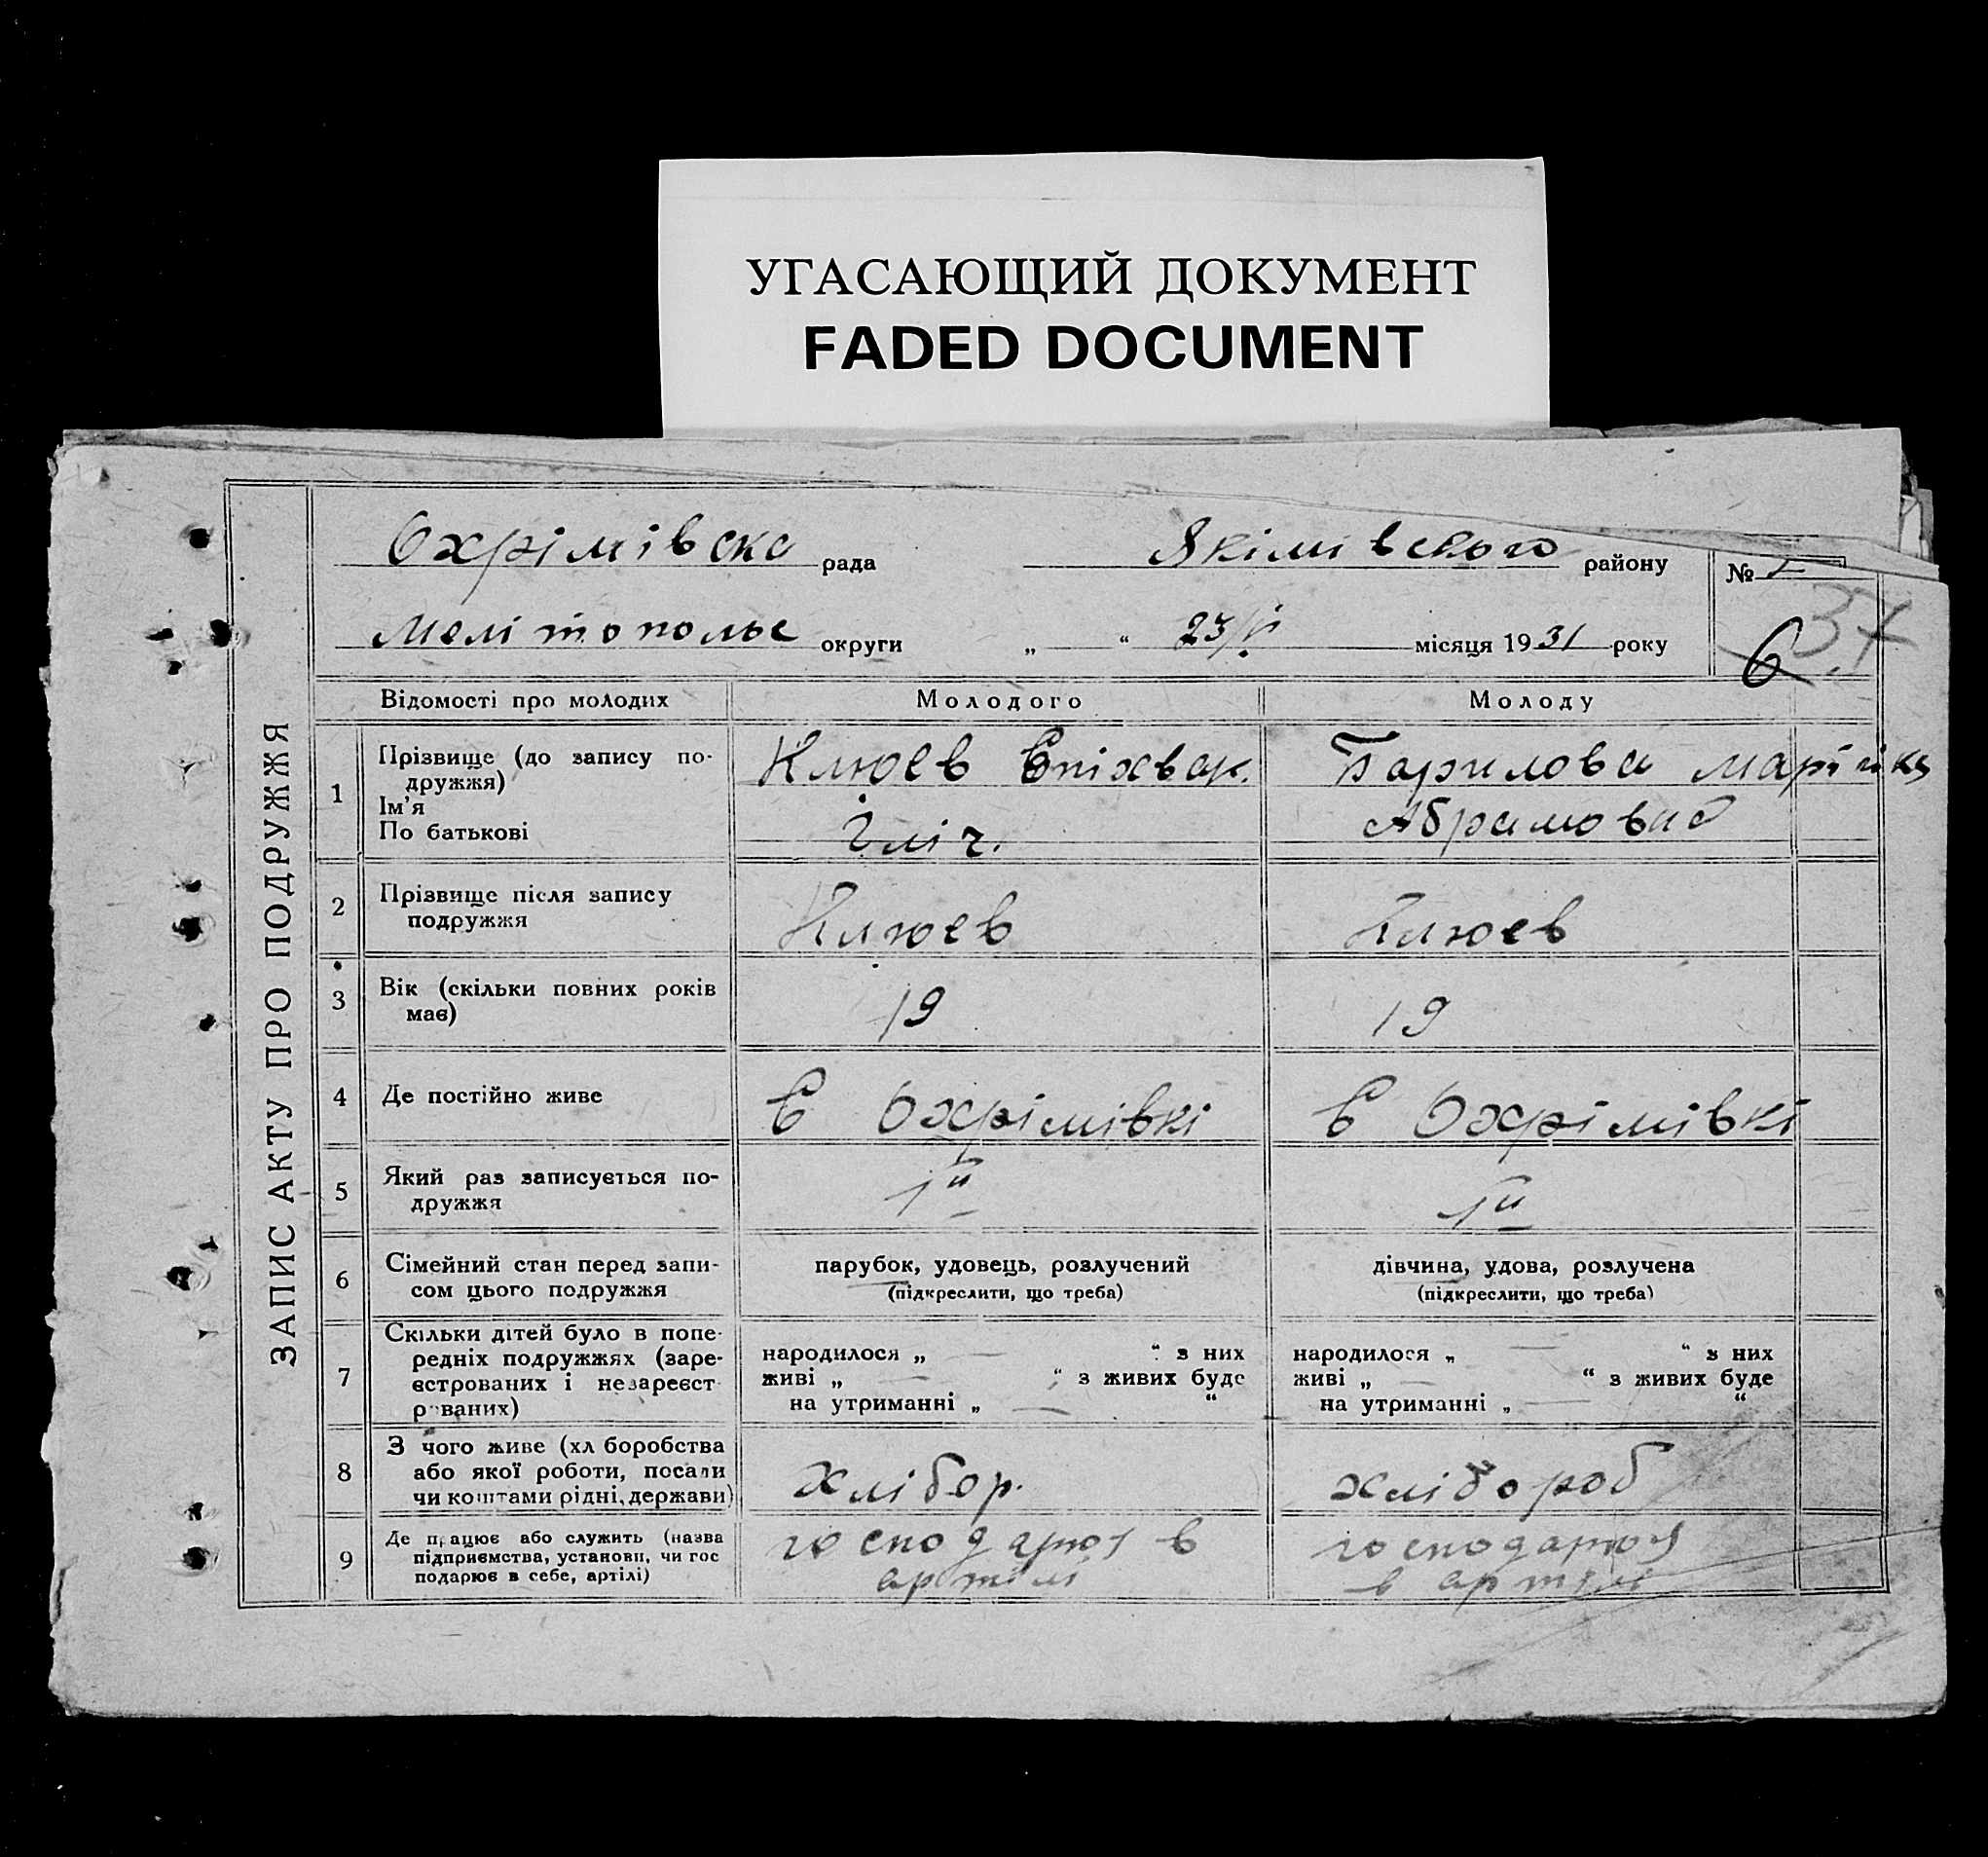 УГАСАЮЩИЙ ДОКУМЕНТ
FADED DOCUMENT
ЗАПИС АКТУ ПРО ПОДРУЖЖЯ
Охрімівска рада Якімівского району №
Мелітопольс округи „ “ 23/VI місяця 1931 року
37
6
Відомості про молодих Молодого Молоду
1 Прізвище (до запису по-
дружжя)
Ім’я
По батькові
Клюєв Єпіхвар.
Іліч.
Барилова
Абрамовна
2 Прізвище після запису
подружжя
Клюєв Клюєв
3 Вік (скільки повних років
має)
19 19
4 Де постійно живе
в Охрімівкі в Охрімівкі
5 Який раз записується по-
дружжя
1й 1й
6 Сімейний стан перед запи-
сом цього подружжя
парубок, удовець, розлучений
(підкреслити, що треба)
дівчина, удова, розлучена
(підкреслити, що треба)
7 Скільки дітей було в попе-
редніх подружжях (заре-
єстрованих і незареєст
рованих)
народилося „ — “ з них
живі „ — “ з живих буде
на утриманні „ — “
народилося „ — “ з них
живі „ — “ з живих буде
на утриманні „ — “
8 З чого живе (хліборобства
або якої роботи, посади
чи коштами рідні, держави)
хлібор. хлібороб
9 Де працює або служить (назва
підприємства, установи, чи гос
подарює в себе, артілі)
господарює в
артілі
господарює
в артілі